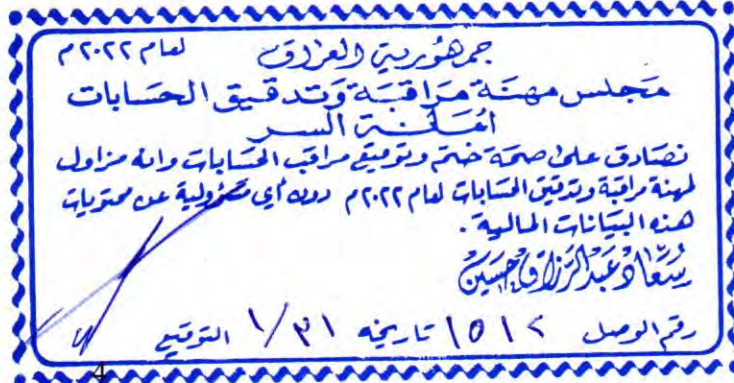 جمهورية العراق لعام ٢٠٢٢م
مجلس مهنة مراقبة وتدقيق الحسابات
أمانة السر
نصادق على صحة ختم وتوقيع مراقب الحسابات وانه مزاول
لمهنة مراقبة وتدقيق الحسابات لعام ٢٠٢٢م دون أي مسؤولية عن محتويات
هذه البيانات المالية .
سعاد عبد الرزاق حسين
رقم الوصل ١٥١٢ تاريخه ١/٣١ التوقيع
4